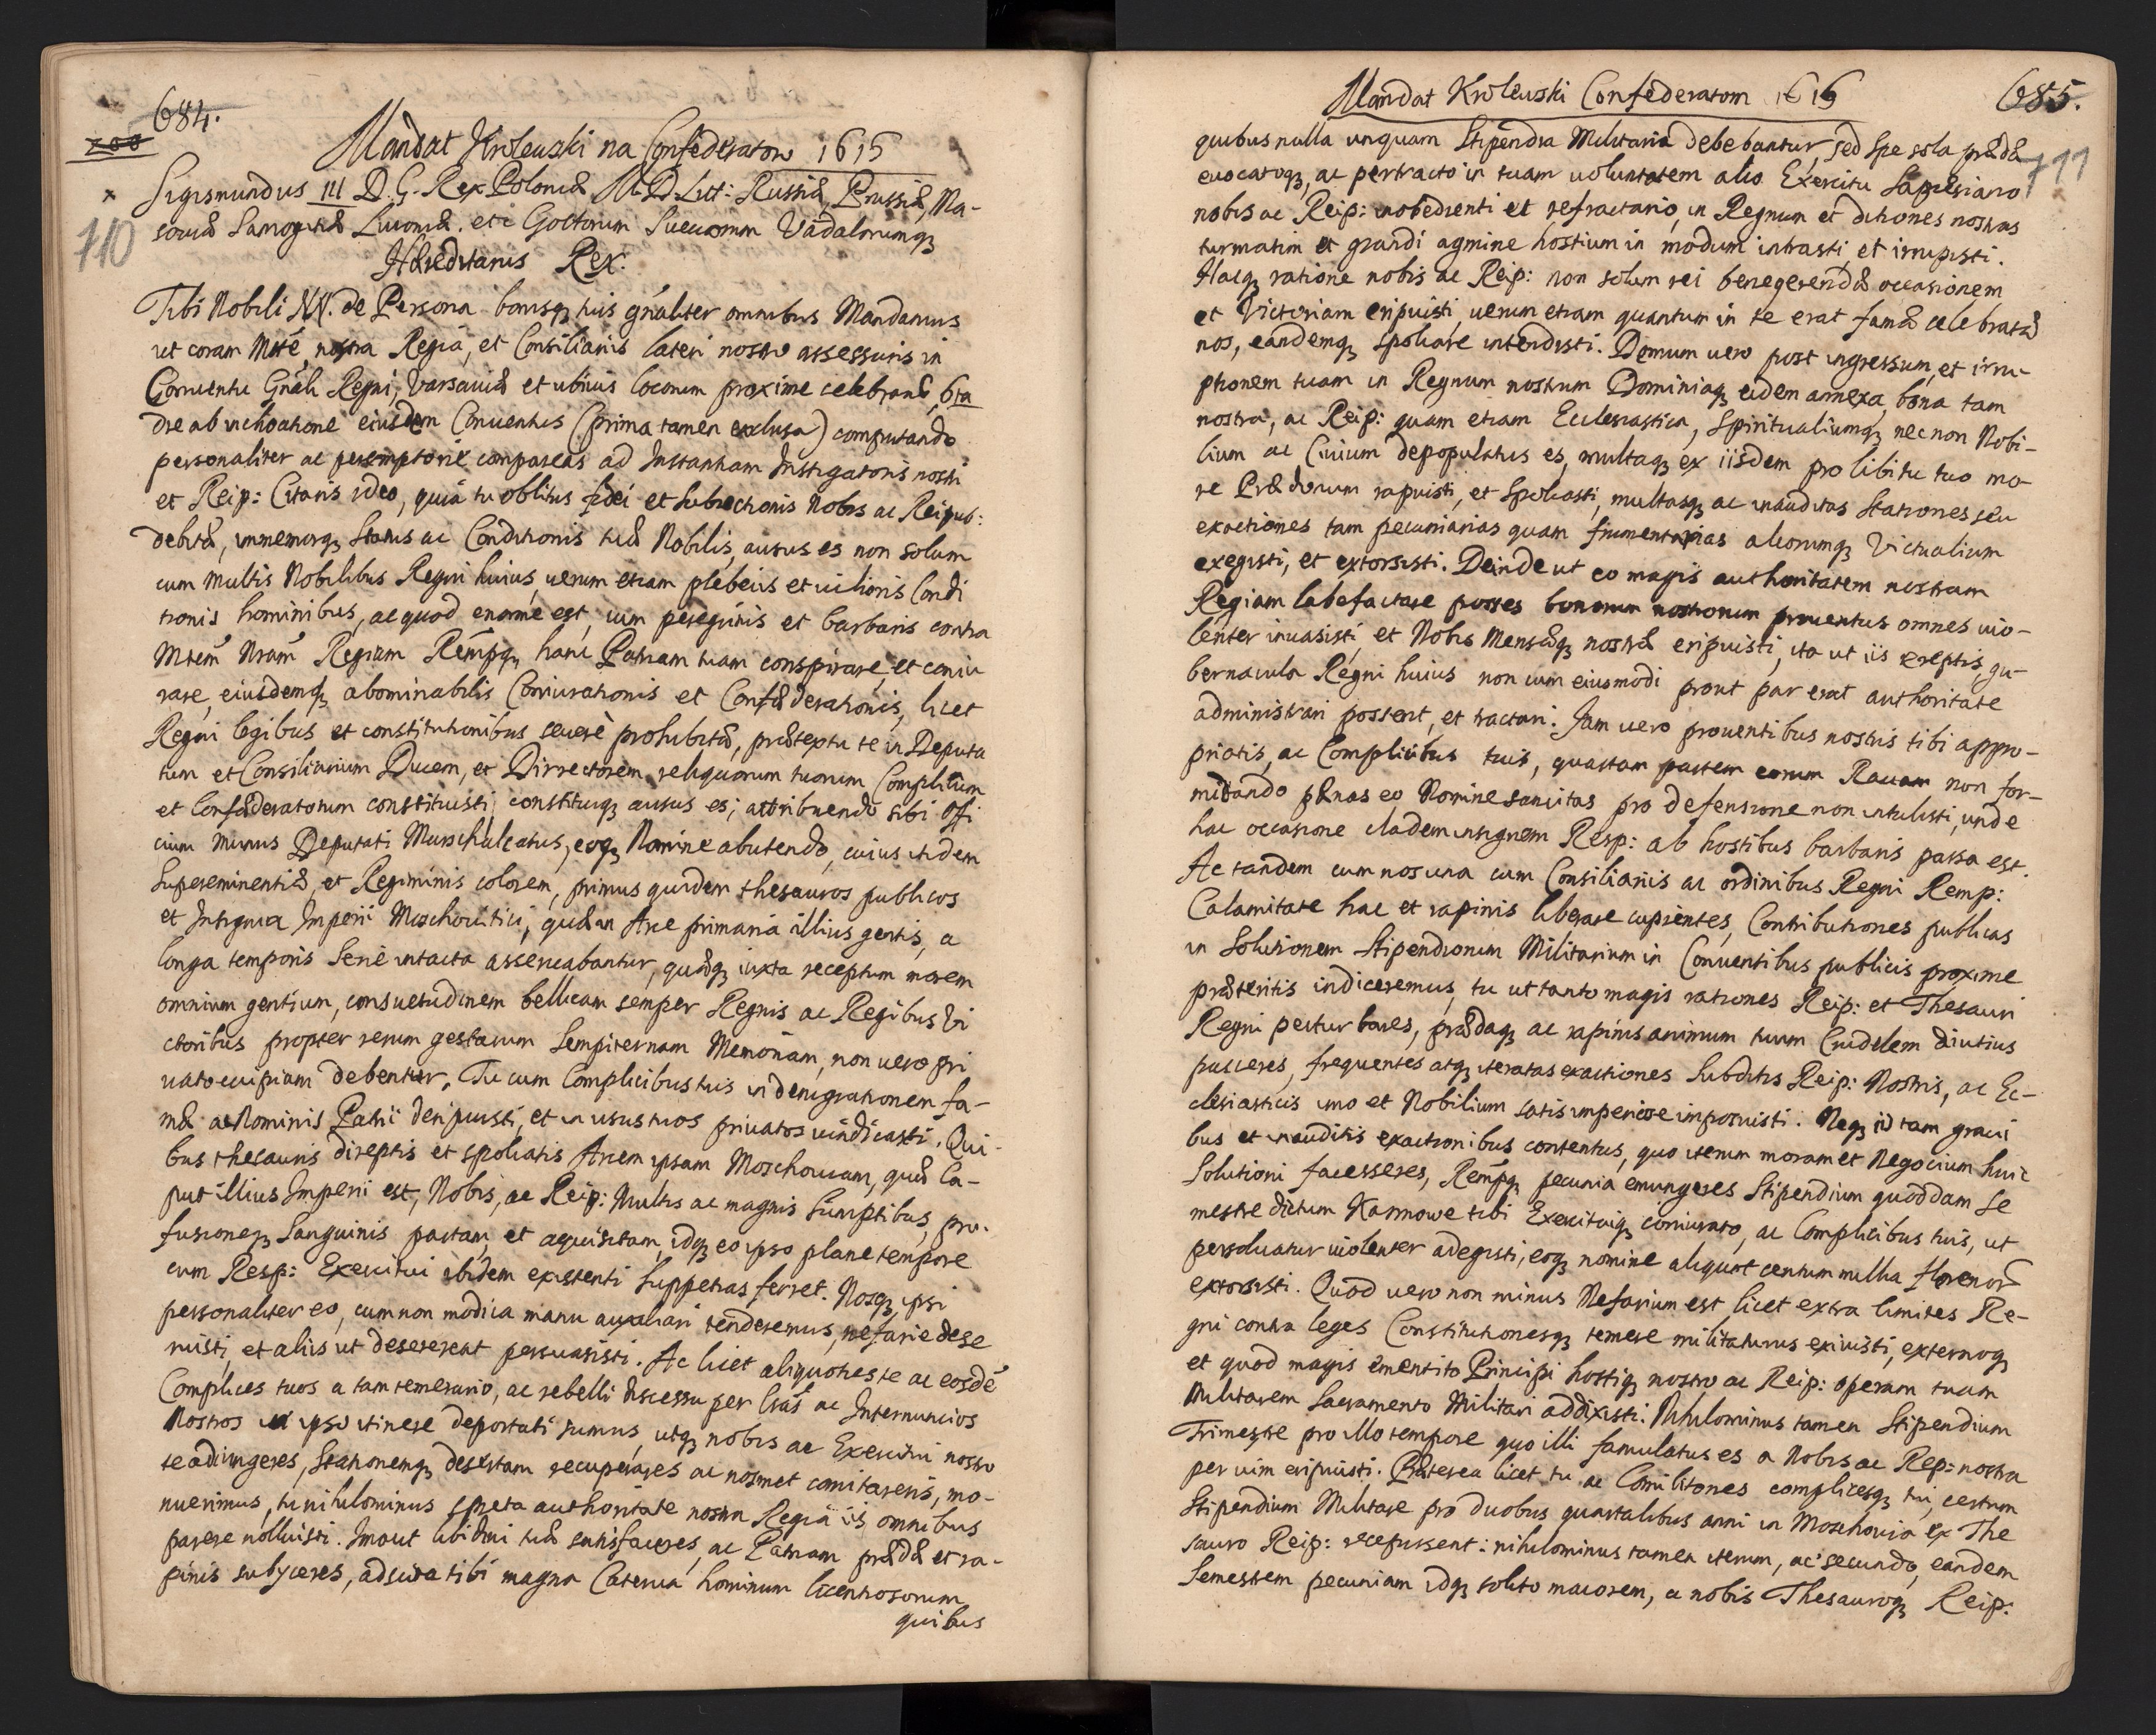 684.
200
Mandat Krolewski na Confederatow 1615
x
710
Sigismundus III D. G. Rex Poloniæ M. D. Lit: Russiæ, Prussiæ, Ma-
soviæ Samogitiæ Livoniæ. etc Gottorum Sueuorum Vãdalorumq3
Hæreditarius Rex.
Tibi Nobili NN. de Persona bonisq3 tuis gñaliter omnibus Mandamus
ut coram Mtté nostra Regia, et Consiliariis lateri nostro assessuris in
Conuentu Gñali Regni, Varsauiæ et ubiuis locorum proxime celebrand, 6ta
die ab inchoatione eiusdem Conuentus (prima tamen exclusa) computando
personaliter ac peremptorie compareas ad Instantiam Instigatoris nostri
et Reip: Citaris ideo, quia tu oblitus fidei et Subiectionis Nobis ac Reipub:
debitæ, immemorq3 Status ac Conditionis tuæ Nobilis, ausus es non solum
cum multis Nobilibus Regni huius, uerum etiam plebeiis et uilioris Condi
tionis hominibus, ac quod enorme est, cum peregrinis et barbaris contra
Mtem Nram Regiam Rempq3 hanc Patriam tuam conspirare, et coniu
rare, eiusdemq3 abominabilis Coniurationis et Confæderationis, licet
Regni legibus et constitutionibus seuere prohibitæ, prætextu te in Deputa
tum et Consiliarium Ducem, et Dirrectorem reliquorum tuorum Complitium
et Confæderatorum constituisti, constituiq3 ausus es; attribuendo tibi Offi
cium Munus Deputati Marschalcatus, eoq3 Nomine abutendo, cuius itidem
Supereminentiæ, et Regiminis colorem, primus quidem thesauros publicos
et Insignia Imperii Moschouitici, quæ in Arce primaria illius gentis, a
longa temporis Serie intacta asseruabantur, quæq3 iuxta receptum morem
omnium gentium, consuetudinem bellicam semper Regnis ac Regibus Vi
ctoribus propter rerum gestarum Sempiternam Memoriam, non uero pri
uato cuipiam debentur, Tu cum Complicibus tuis in denigrationem fa-
mæ ac Nominis Patrii deripuisti, et in usus tuos priuatos uindicasti. Qui-
bus thesauris direptis et spoliatis Arcem ipsam Moschouiam, quæ Ca-
put illius Imperii est, Nobis, ac Reip: Multis ac magnis Sumptibus, pro-
fusioneq3 Sanguinis partam, et aquisitam, idq3 eo ipso plane tempore
cum Resp: Exercitui ibidem existenti Suppetias ferret. Nosq3 ipsi
personaliter eo, cum non modica manu auxiliari tenderemus, nefarie dese
ruisti, et aliis ut desererent persuasisti. Ac licet aliquoties te ac eosdé
Complices tuos a tam temerario, ac rebelli discessu per Lrãs ac Internuncios
Nostros in ipso itinere deportati sumus, utq3 nobis ac Exercitui nostro
te adiungeres, Stationemq3 desertam recuperares ac nosmet comitareris, mo-
nuerimus, tu nihilominus spreta authoritate nostra Regia iis omnibus
parere nolluisti. Imo ut libidini tuæ satisfaceres, ac Patriam prædæ et ra-
pinis subyceres, adscita tibi magna Caterua hominum licentiosorum
quibus
Mandat Krolewski Confederatom 1616
685.
711
quibus nulla unquam Stipendia Militaria debebantur, sed Spe sola prædæ
euocatoq3, ac pertracto in tuam uoluntatem alio Exercitu Sapiesiano
nobis ac Reip: inobedienti et refractario, in Regnum et ditiones nostras
turmatim et grandi agmine hostium in modum intrasti, et irrupisti.
Hacq3 ratione nobis ac Reip: non solum rei benegerendæ occasionem
et Victoriam eripuisti, uerum etiam quantum in te erat famæ celebratæ
nos, eandemq3 spoliare intendisti. Demum uero post ingressum, et irru-
ptionem tuam in Regnum nostrum Dominiaq3 eidem annexa, bona tam
nostra, ac Reip: quam etiam Ecclesiastica, Spiritualiumq3 nec non Nobi-
lium ac Ciuium depopulatus es, multaq3 ex iisdem pro libitu tuo mo-
re Prædonum rapuisti, et Spoliasti, multasq3 ac inauditas Stationes seu
exactiones tam pecuniarias quam frumentarias aliorumq3 Victualium
exegisti, et extorsisti. Deinde ut eo magis authoritatem nostram
Regiam labefactare posses bonorum nostrorum prouentus omnes uio-
lenter inuasisti, et Nobis Mensæq3 nostræ eripuisti, ita ut iis ereptis, gu-
bernacula Regni huius non cum eiusmodi prout par erat authoritate
administrari possent, et tractari. Jam uero prouentibus nostris tibi appro-
priatis, ac Complicibus tuis, quartam partem eorum Rauam non for-
midando pænas eo Nomine sancitas pro defensione non intulisti, unde
hac occasione cladem insignem Resp: ab hostibus barbaris passa est.
Ac tandem cum nos una cum Consiliariis ac ordinibus Regni Remp:
Calamitate hac et rapinis liberare cupientes, Contributiones publicas
in Solutionem Stipendiorum Militarium in Conuentibus publicis proxime
præteritis indiceremus, tu ut tanto magis rationes Reip: et Thesauri
Regni perturbares, prædaq3 ac rapinis animum tuum Crudelem diutius
pasceres, frequentes atq3 iteratas exactiones Subditis Reip: Nostris, ac Ec-
clesiasticis imo et Nobilium satis imperiose imposuisti. Neq3 iis tam graui
bus et inauditis exactionibus contentus, quo iterum moram et Negocium huic
Solutioni facesseres, Rempq3 pecunia emungeres Stipendium quoddam Se
mestre dictum Karmowe tibi Exercituiq3 coniurato, ac Complicibus tuis, ut
persoluatur uiolenter adegisti, eoq3 nomine aliquot centum millia florenorũ
extorsisti. Quod uero non minus Nefarium est, licet extra limites Re-
gni contra leges Constitutionesq3 temere militaturus exiuisti, externoq3
et quod magis ementito Principi hostiq3 nostro ac Reip: operam tuam
Militarem Sacramento Militari addixisti. Nihilominus tamen Stipendium
Trimestre pro illo tempore quo illi famulatus es a Nobis ac Rep: nostra
per uim eripuisti. Præterea licet tu ac Comilitones complicesq3 tui, certum
Stipendium Militare pro duobus quartalibus anni in Moschouia ex The
sauro Reip: recepissent: nihilominus tamen iterum, ac secundo, eandem
Semestrem pecuniam idq3 solito maiorem, a nobis Thesauroq3 Reip: